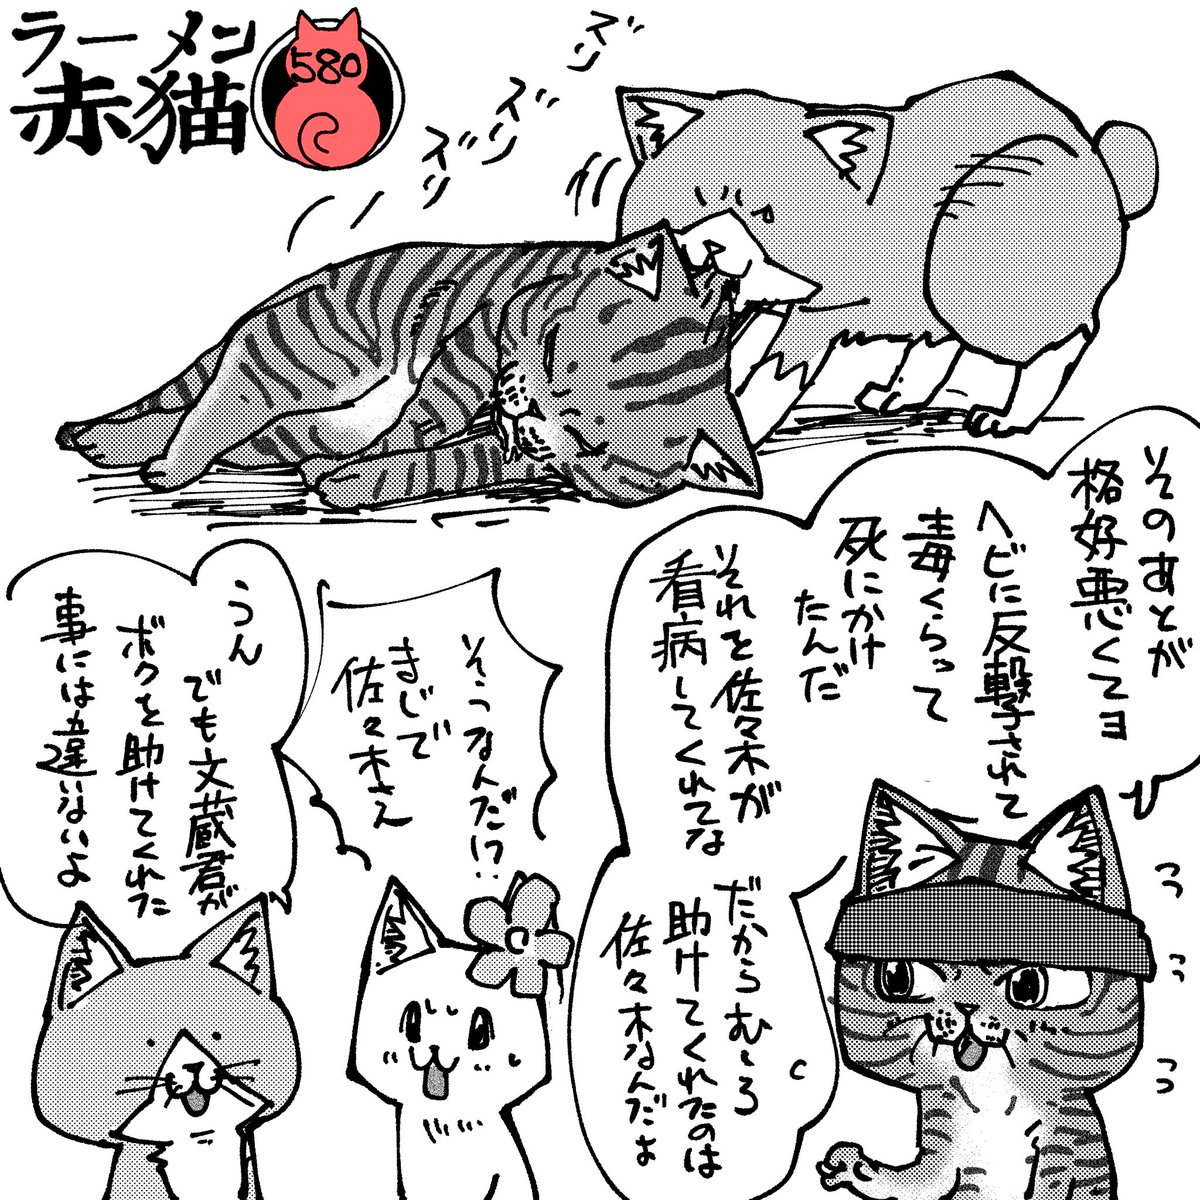 ラーメン
赤猫
580
ズリ
ズリ
ズリ
そのあとが
格好悪くてヨ
ヘビに反撃されて
毒くらって
死にかけ
たんだ
それを佐々木が
看病してくれてな
だからむしろ
助けてくれたのは
佐々木なんだよ
そうなんだ!?
まじで
佐々木さん
うん
でも文蔵君が
ボクを助けてくれた
事には違いないよ